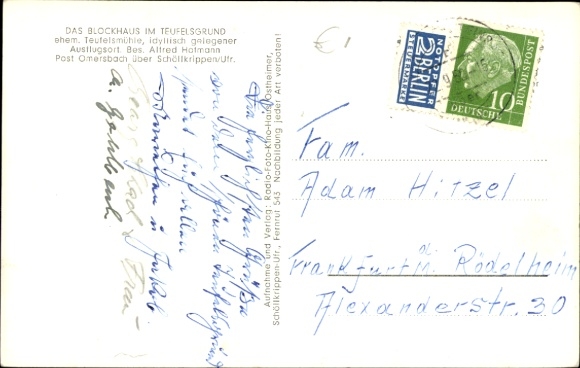 DAS BLOCKHAUS IM TEUFELSGRUND
ehem. Teufelsmühle, idyllisch gelegener
Ausflugsort. Bes. Alfred Hofmann
Post Omersbach über Schöllkrippen/Ufr.
Aufnahme und Verlag: Radio-Foto-Kino-Haus Ostheimer,
Schöllkrippen-Ufr., Fernruf 545 Nachbildung jeder Art verboten!
Die herzlichsten Grüße
von dem schönen Teufelsgrund
sendet Euch allen
u. Frau
€ 1
NOTOPFER
2 BERLIN
STEUERMARKE
10
DEUTSCHE
BUNDESPOST
Fam.
Adam Hitzel
Frankfurt/M. Rödelheim
Alexanderstr. 30